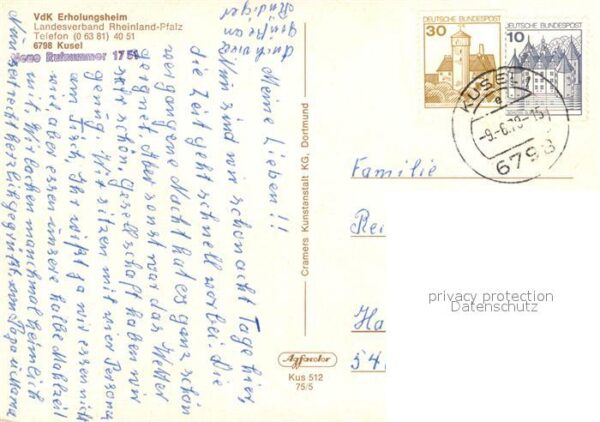 VdK Erholungsheim
Landesverband Rheinland-Pfalz
Telefon (0 63 81) 40 51
6798 Kusel
Neue Rufnummer 17 51
Meine Lieben!!
Nun sind wir schon acht Tage hier
die Zeit geht schnell vorbei. Die
vergangene Nacht hat es ganz schön
geregnet. Aber sonst war das Wetter
sehr schön, Gesellschaft haben wir
genug. Wir sitzen mit vier Personen
am Tisch, Ihr wißt ja wir essen nicht
viel aber essen unsere halbe Mahlzeit
mit. Wir lachen manchmal heimlich
Nun seit recht herzlich gegrüßt, von Papa u Mama
auch viele
Grüße an
Rüdiger
Cramers Kunstanstalt KG, Dortmund
Agfacolor
Kus 512
75/5
30
DEUTSCHE BUNDESPOST
10
DEUTSCHE BUNDESPOST
KUSEL 1
-9.-6.78-15
6798
Familie
Re
Ha
54
privacy protection
Datenschutz